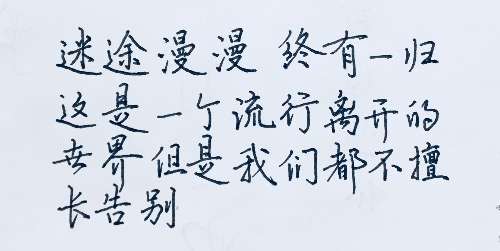 迷途漫漫 终有一归
这是一个流行离开的
世界但是我们都不擅
长告别